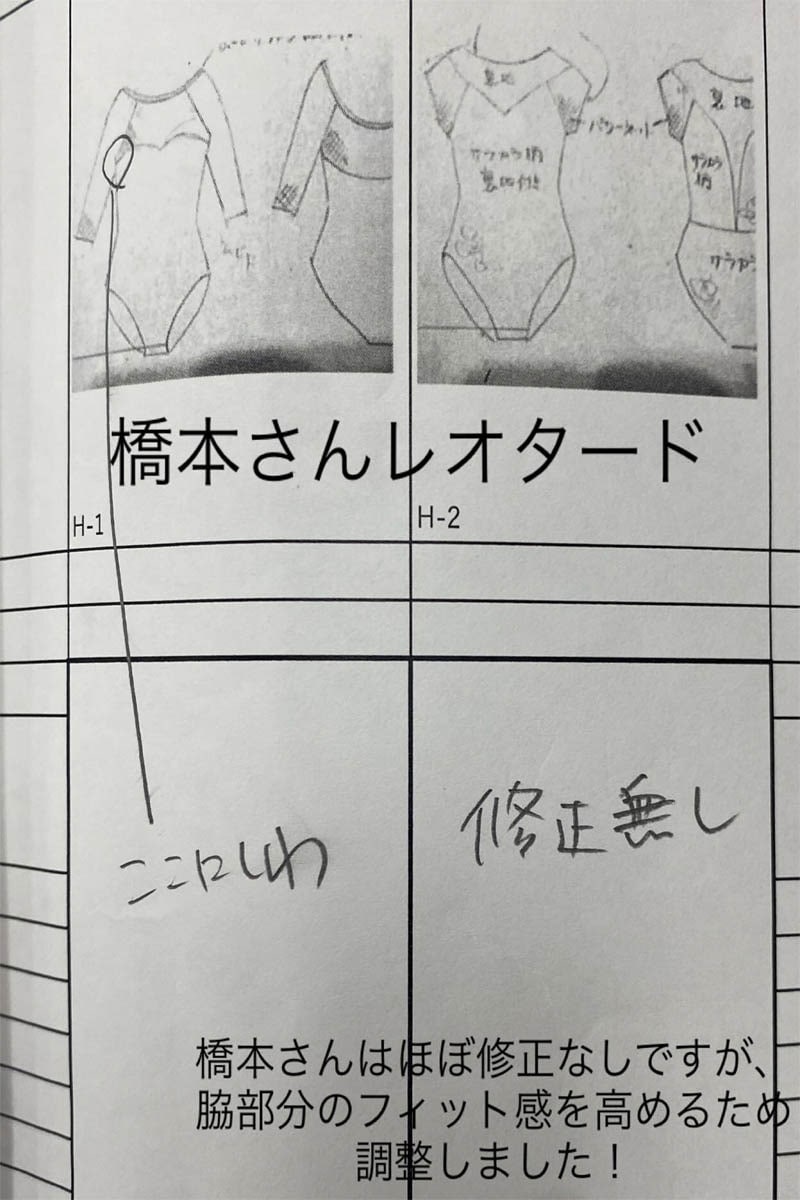 裏地
パワーネット
サラカラ柄
裏地付き
裏地
橋本さんレオタード
H-1
H-2
ここにしわ
修正無し
橋本さんはほぼ修正なしですが、
脇部分のフィット感を高めるため
調整しました！